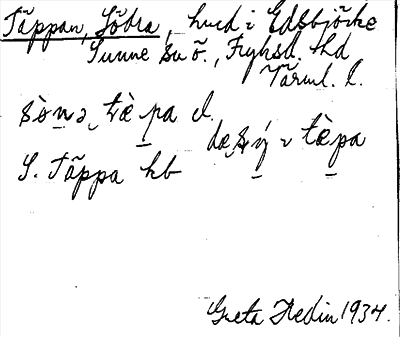 Täppan, Södra, hmd i Edsbjörke
Sunne sn ö., Fryksd. hd
Värml. l.
sònə tæ̀pa el.
tæ̀pa
S. Täppa hb
Greta Hedin 1934.